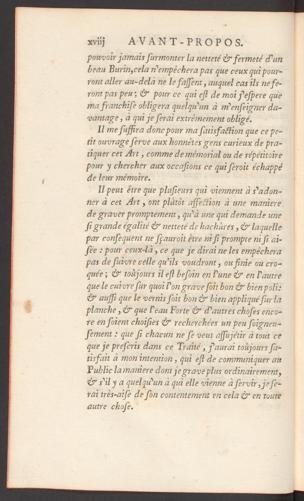 xviij AVANT-PROPOS.
pouvoir jamais surmonter la netteté & fermeté d'un
beau Burin, cela n'empêchera pas que ceux qui pour-
ront aller au-delà ne le fassent, auquel cas ils ne fe-
ront pas peu; & pour ce qui est de moi j'espere que
ma franchise obligera quelqu'un à m'enseigner da-
vantage, à qui je serai extrêmement obligé.
Il me suffira donc pour ma satisfaction que ce pe-
tit ouvrage serve aux honnêtes gens curieux de pra-
tiquer cet Art, comme de mémorial ou de répétitoire
pour y chercher aux occasions ce qui seroit échappé
de leur mémoire.
Il peut être que plusieurs qui viennent à s'adon-
ner à cet Art, ont plûtôt affection à une maniere
de graver promptement, qu'à une qui demande une
si grande égalité & netteté de hachûres, & laquelle
par consequent ne sçauroit être ni si prompte ni si ai-
sée: pour ceux-là, ce que je dirai ne les empêchera
pas de suivre celle qu'ils voudront, ou finie ou cro-
quée; & toûjours il est besoin en l'une & en l'autre
que le cuivre sur quoi l'on grave soit bon & bien poli:
& aussi que le vernis soit bon & bien appliqué sur la
planche, & que l'eau Forte & d'autres choses enco-
re en soient choisies & recherchées un peu soigneu-
sement: que si chacun ne se veut assujétir à tout ce
que je prescris dans ce Traité, j'aurai toûjours sa-
tisfait à mon intention, qui est de communiquer au
Public la maniere dont je grave plus ordinairement,
& s'il y a quelqu'un à qui elle vienne à servir, je se-
rai très-aise de son contentement en cela & en toute
autre chose.